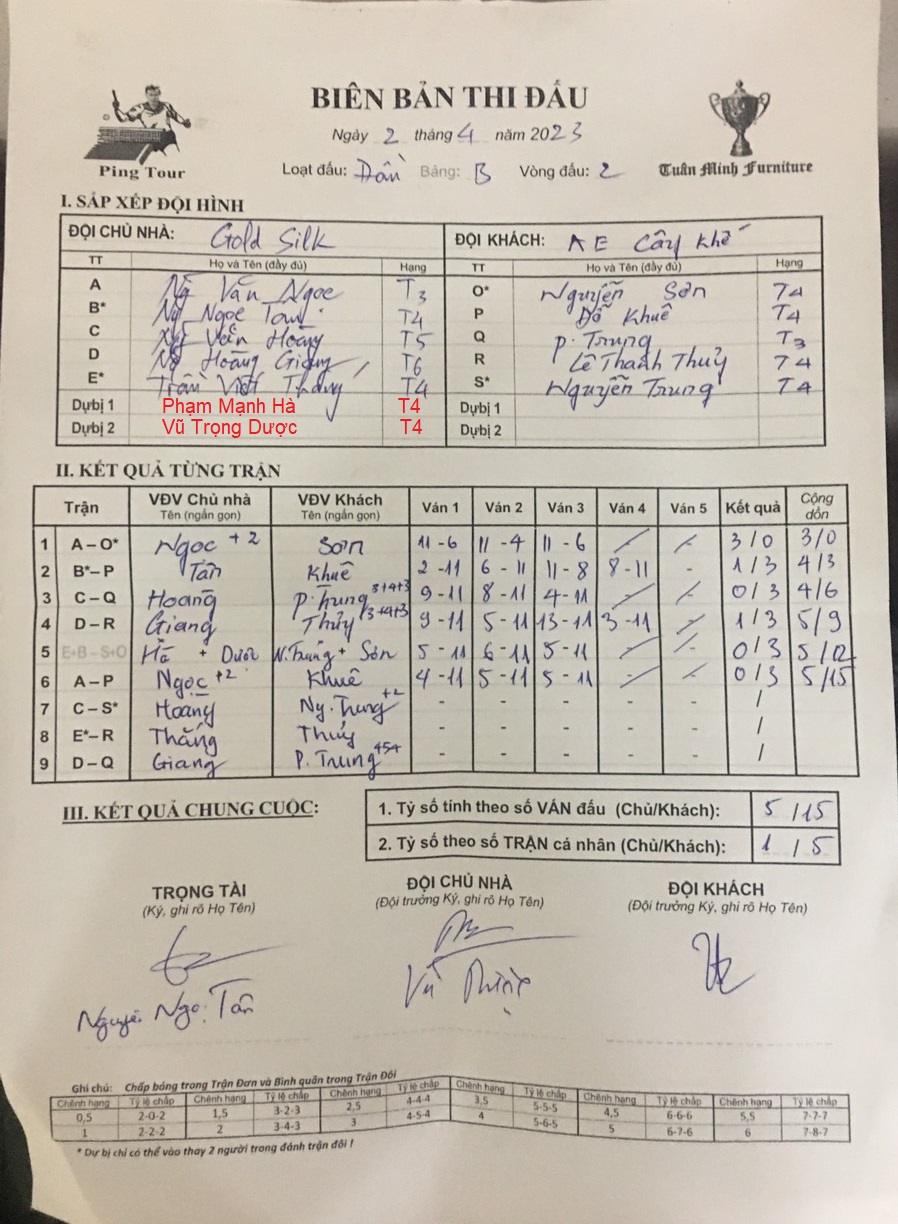 BIÊN BẢN THI ĐẤU
Ping Tour
Ngày 2 tháng 4 năm 2023
Loạt đấu: Dần Bảng: B Vòng đấu: 2
Tuấn Minh Furniture
I. SẮP XẾP ĐỘI HÌNH
ĐỘI CHỦ NHÀ: Gold Silk ĐỘI KHÁCH: AE Cây Khế
TT Họ và Tên (đầy đủ) Hạng TT Họ và Tên (đầy đủ) Hạng
A Ng Văn Ngọc T3 O* Nguyễn Sơn T4
B* Ng Ngọc Tân T4 P Đỗ Khuê T4
C Văn Hoàng T5 Q P. Trung T3
D Ng Hoàng Giang T6 R Lê Thanh Thuỷ T4
E* Trần Việt Thắng T4 S* Nguyễn Trung T4
Dự bị 1 Phạm Mạnh Hà T4 Dự bị 1
Dự bị 2 Vũ Trọng Dược T4 Dự bị 2
II. KẾT QUẢ TỪNG TRẬN
Trận VĐV Chủ nhà Tên (ngắn gọn) VĐV Khách Tên (ngắn gọn) Ván 1 Ván 2 Ván 3 Ván 4 Ván 5 Kết quả Cộng dồn
1 A – O* Ngọc +2 Sơn 11 - 6 11 - 4 11 - 6 - - 3 / 0 3/0
2 B* – P Tân Khuê 2 - 11 6 - 11 11 - 8 8 - 11 - 1 / 3 4/3
3 C – Q Hoàng P. Trung 3+4+3 9 - 11 8 - 11 4 - 11 - - 0 / 3 4/6
4 D – R Giang Thủy 3+4+3 9 - 11 5 - 11 13 - 11 3 - 11 - 1 / 3 5/9
5 E+B – S+O Hà + Dược N. Trung + Sơn 5 - 11 6 - 11 5 - 11 - - 0 / 3 5/12
6 A – P Ngọc +2 Khuê 4 - 11 5 - 11 5 - 11 - - 0 / 3 5/15
7 C – S* Hoàng Ng. Trung +2 - - - - - /
8 E* – R Thắng Thủy - - - - - /
9 D – Q Giang P. Trung 454 - - - - - /
III. KẾT QUẢ CHUNG CUỘC:
1. Tỷ số tính theo số VÁN đấu (Chủ/Khách): 5 / 15
2. Tỷ số theo số TRẬN cá nhân (Chủ/Khách): 1 / 5
TRỌNG TÀI ĐỘI CHỦ NHÀ ĐỘI KHÁCH
(Ký, ghi rõ Họ Tên) (Đội trưởng Ký, ghi rõ Họ Tên) (Đội trưởng Ký, ghi rõ Họ Tên)
Vũ
Ngọc Tân
Ghi chú: Chấp bóng trong Trận Đơn và Bình quân trong Trận Đôi
Chênh hạng Tỷ lệ chấp Chênh hạng Tỷ lệ chấp Chênh hạng Tỷ lệ chấp Chênh hạng Tỷ lệ chấp Chênh hạng Tỷ lệ chấp Chênh hạng Tỷ lệ chấp
0,5 2-0-2 1,5 3-2-3 2,5 4-4-4 3,5 5-5-5 4,5 6-6-6 5,5 7-7-7
1 2-2-2 2 3-4-3 3 4-5-4 4 5-6-5 5 6-7-6 6 7-8-7
* Dự bị chỉ có thể vào thay 2 người trong đánh trận đôi !